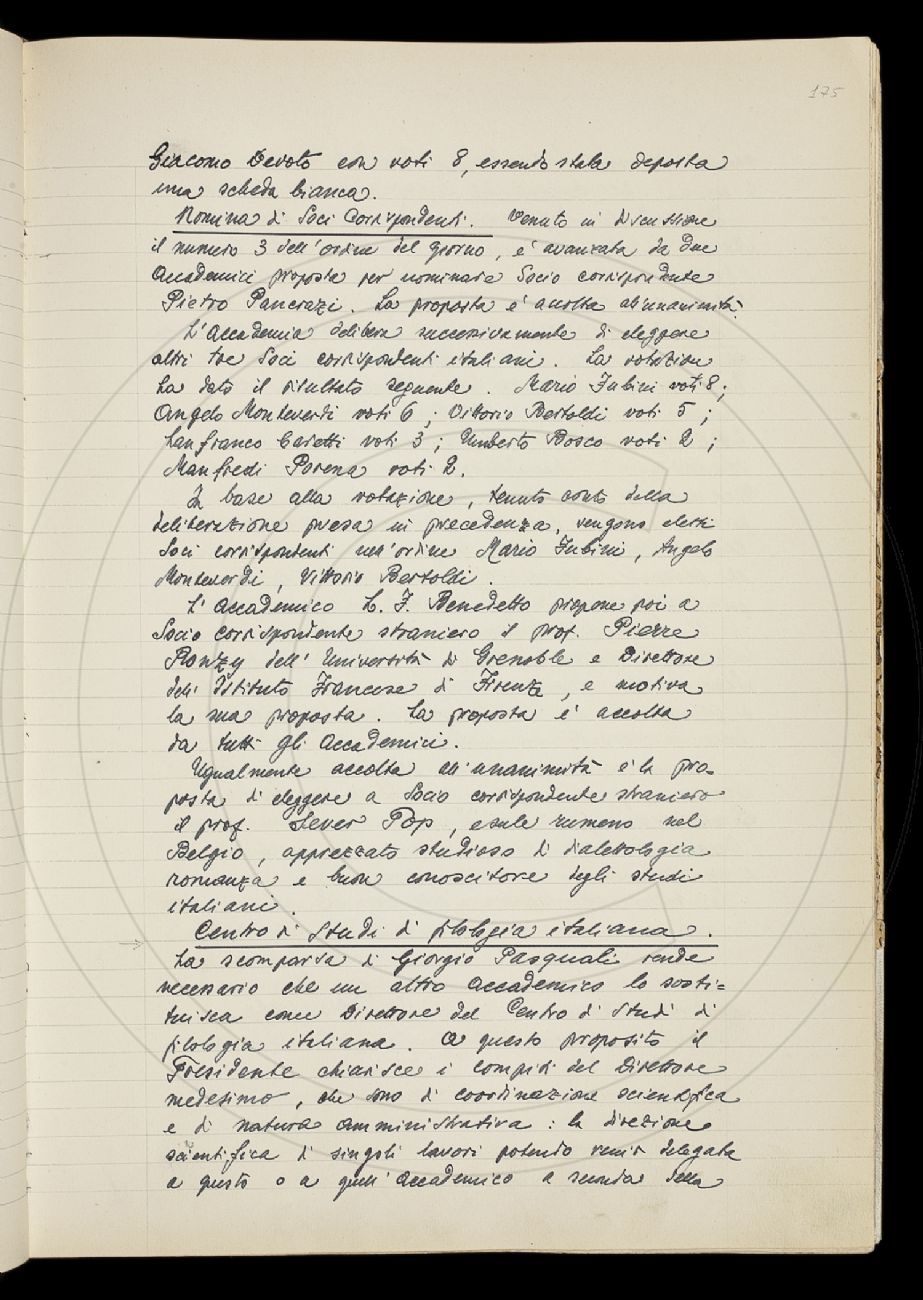 175
Giacomo Devoto con voti 8, essendo stata deposta
una scheda bianca.
Nomina di Soci Corrispondenti. Venuto in discussione
il numero 3 dell'ordine del giorno, e' avanzata da due
Accademici proposta per nominare Socio corrispondente
Pietro Pancrazi. La proposta e' accolta all'unanimità.
L'Accademia delibera successivamente di eleggere
altri tre Soci corrispondenti italiani. La votazione
ha dato il risultato seguente. Mario Fubini voti 8;
Angelo Monteverdi voti 6; Vittorio Bertoldi voti 5;
Lanfranco Caretti voti 3; Umberto Bosco voti 2;
Manfredi Porena voti 2.
In base alla votazione, tenuto conto della
deliberazione presa in precedenza, vengono eletti
Soci corrispondenti nell'ordine Mario Fubini, Angelo
Monteverdi, Vittorio Bertoldi.
L'Accademico L. F. Benedetto propone poi a
Socio corrispondente straniero il prof. Pierre
Ronzy dell'Università di Grenoble e Direttore
dell'Istituto Francese di Firenze, e motiva
la sua proposta. La proposta e' accolta
da tutti gli Accademici.
Ugualmente accolta all'unanimità e' la pro-
posta di eleggere a Socio corrispondente straniero
il prof. Sever Pop, esule rumeno nel
Belgio, apprezzato studioso di dialettologia
romanza e buon conoscitore degli studi
italiani.
Centro di Studi di filologia italiana.
La scomparsa di Giorgio Pasquali rende
necessario che un altro Accademico lo sosti=
tuisca come Direttore del Centro di Studi di
filologia italiana. A questo proposito il
Presidente chiarisce i compiti del Direttore
medesimo, che sono di coordinazione scientifica
e di natura amministrativa: la direzione
scientifica di singoli lavori potendo venir delegata
a questo o a quell'Accademico a seconda della